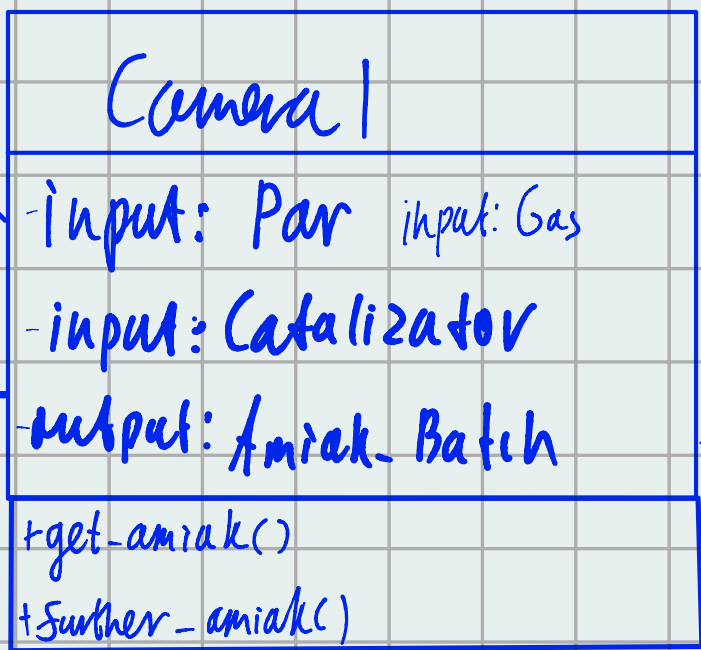 Camera 1
-input: Par input: Gas
-input: Catalizator
-output: Amiak_Batch
+get_amiak()
+further_amiak()